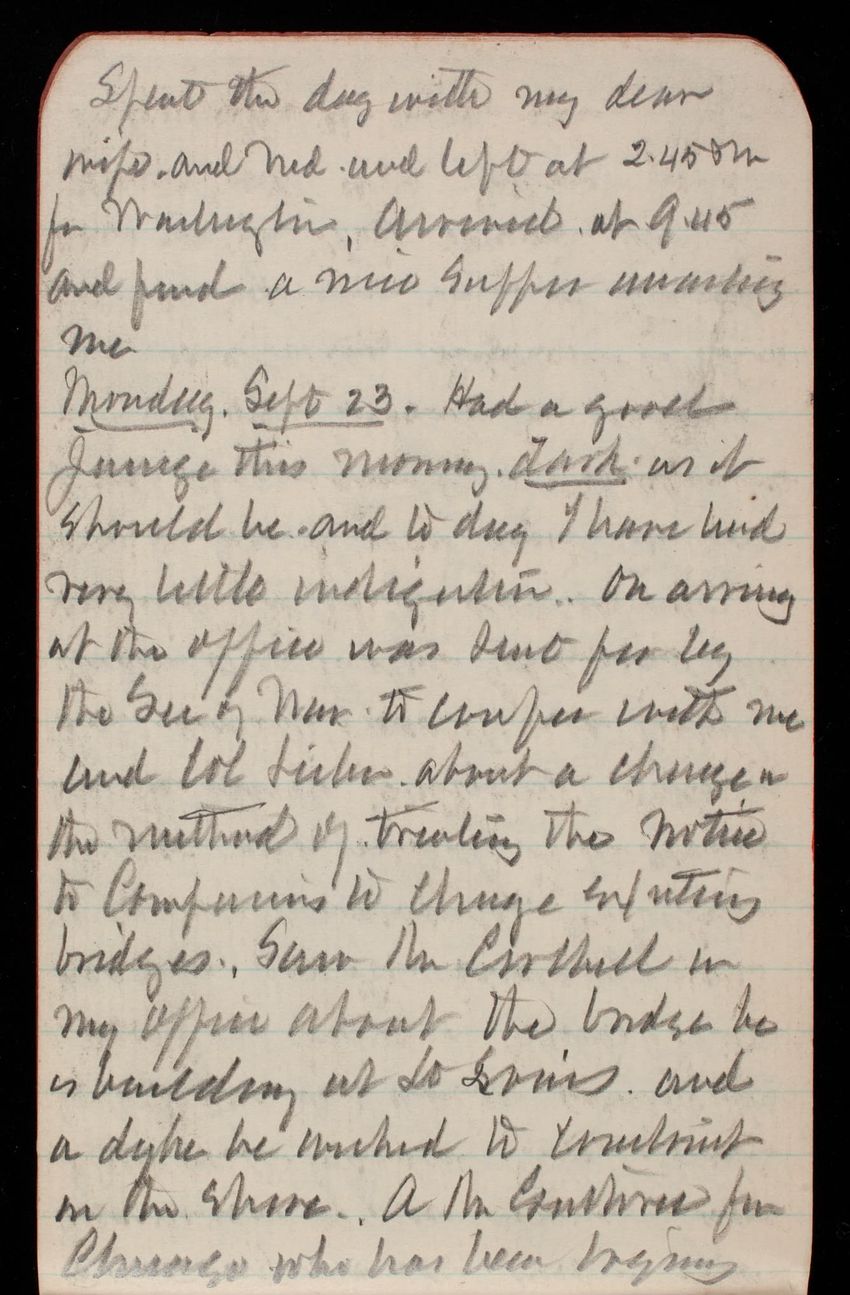 Spent the day with my dear
wife. and Ned. and left at 2.45 Pm
for Washington, Arrived. at 9.45
and found a nice supper awaiting
me
Monday. Sept 23. Had a good
passage this morning. dark. as it
should be. and to day I have had
very little indigestion.. On arriving
at the office was sent for by
the Sec of War. to confer with me
and Col about a change in
the method of treating the notice
to Companies to change existing
bridges., Saw Mr Corthell in
my office about the bridge he
is building at St Louis. and
a dyke he wished to construct
on the shore.. A Mr from
Chicago who has been